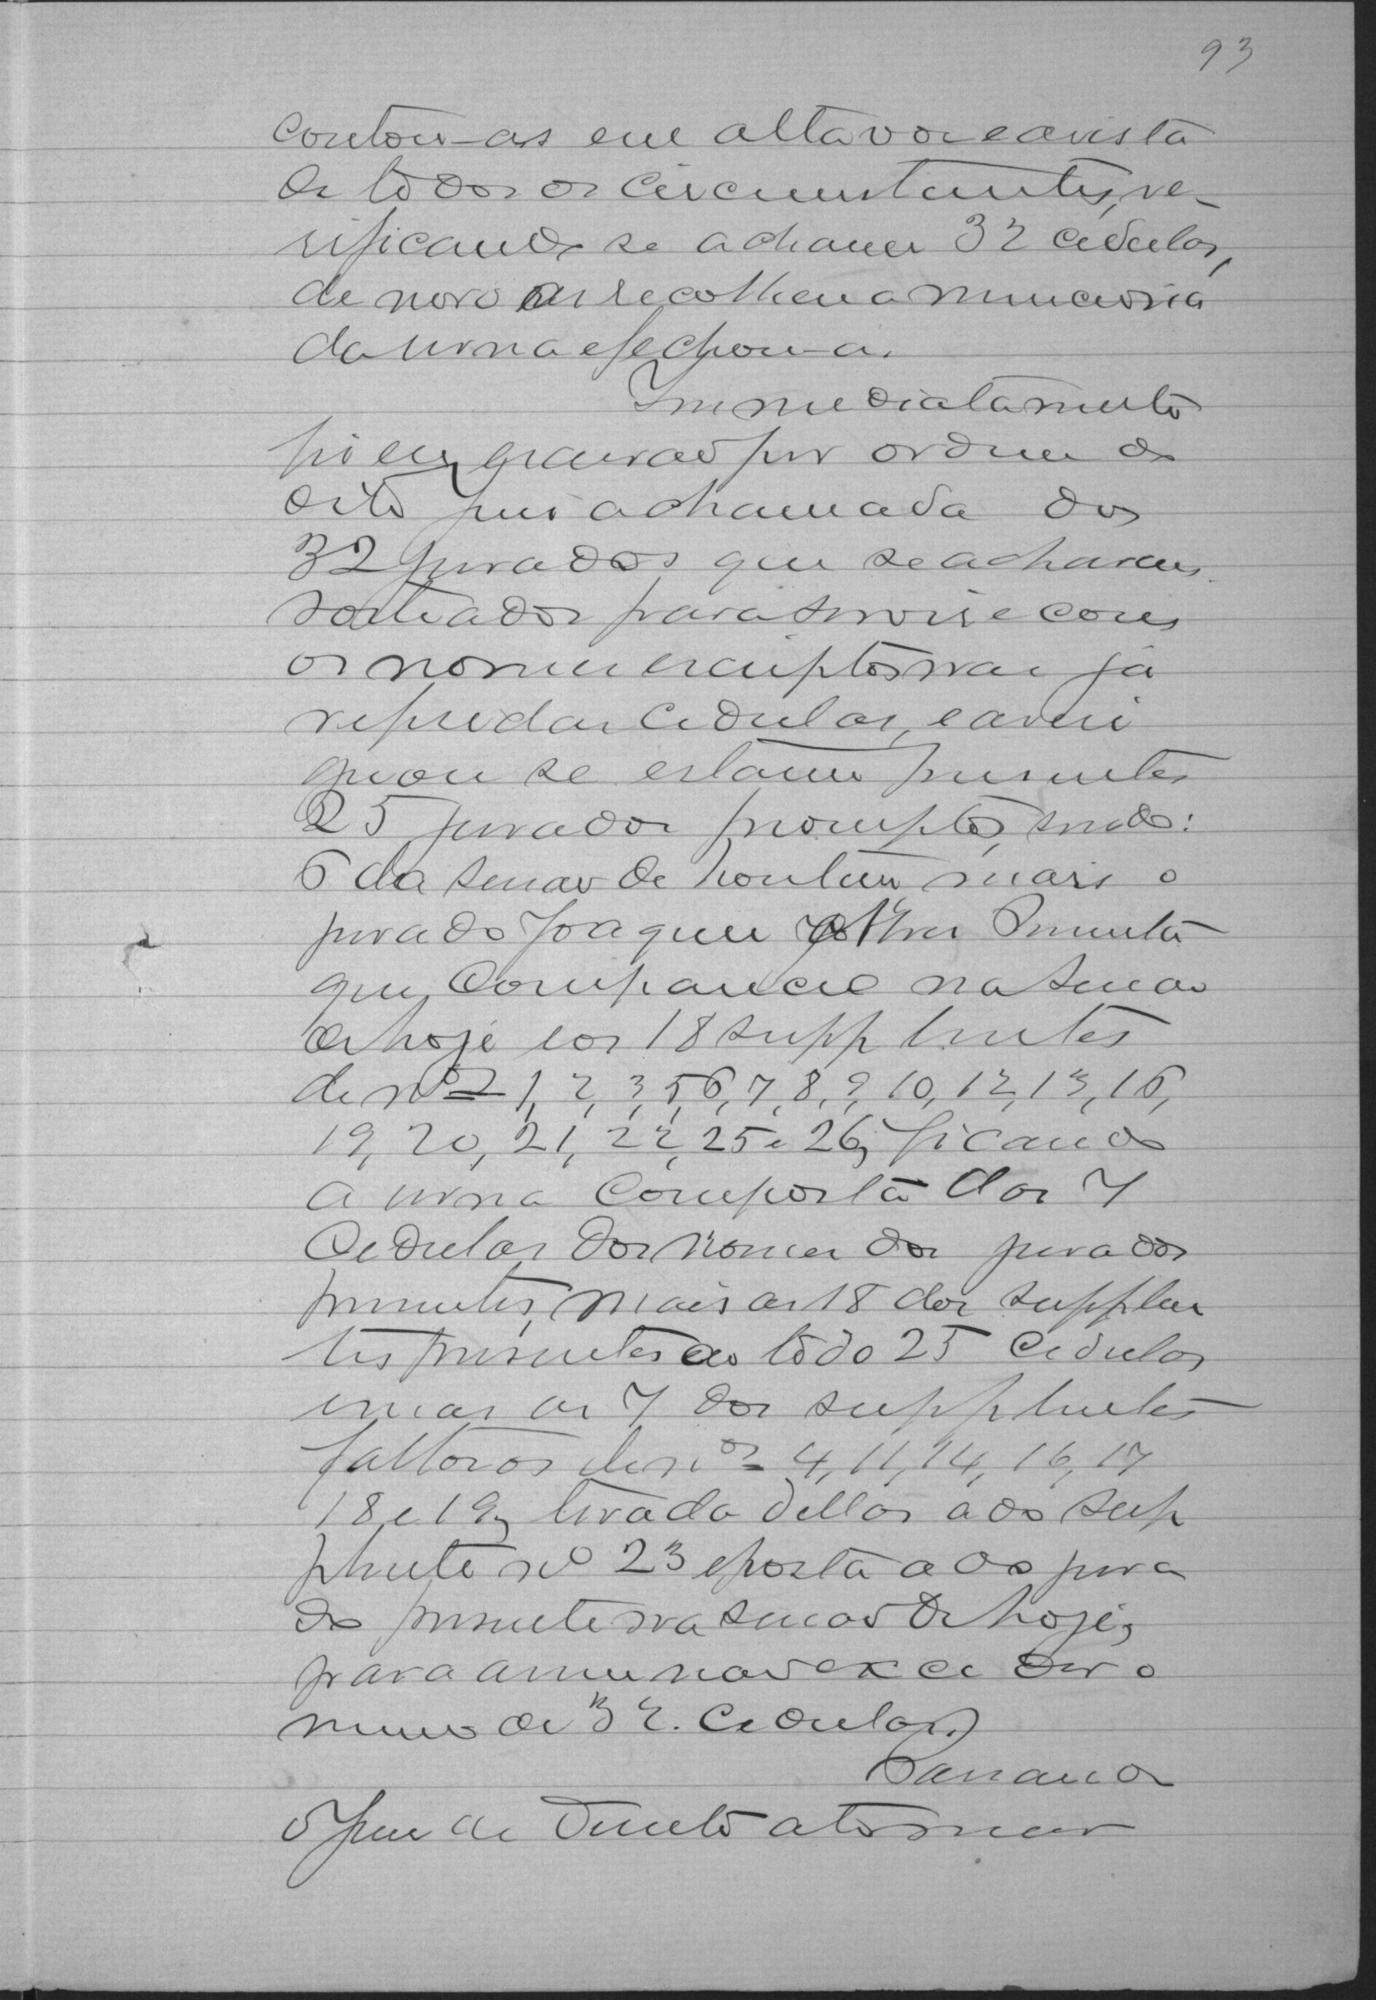 93
contou-as em alta voz e a vista
de todos os circumstantes, ve-
rificando se acharem 32 cedulas,
de novo as recolheu a mencionada
da urna e fechou-a.
Immediatamente
fiz eu, escrivão por ordem do
dito juiz a chamada dos
32 jurados que se acharam
sorteados para servir e com
os nomes escriptos nas já
referidas cedulas, e averi
guou se estarem presentes
25 jurados promptos, sendo:
6 da sessão de hontem mais o
jurado Joaquim Alves Pimenta
que, compareceu na sessão
de hoje e os 18 supplentes
de nos 1, 2, 3, 5, 6, 7, 8, 9, 10, 12, 13, 15,
19, 20, 21, 22, 25 e 26, ficando
a urna composta das 7
cedulas dos nomes dos jurados
presentes, mais as 18 dos supplen
tes presentes ao todo 25 cedulas
e mais as 7 dos supplentes
faltosos de nos 4, 11, 14, 16, 17
18 e 19, tirada dellas a do sup
plente no 23 e posta a do jura
do presente na sessão de hoje,
para assim não exceder o
numero de 32 cedulas.
Passando
o juiz de Direito a tomar